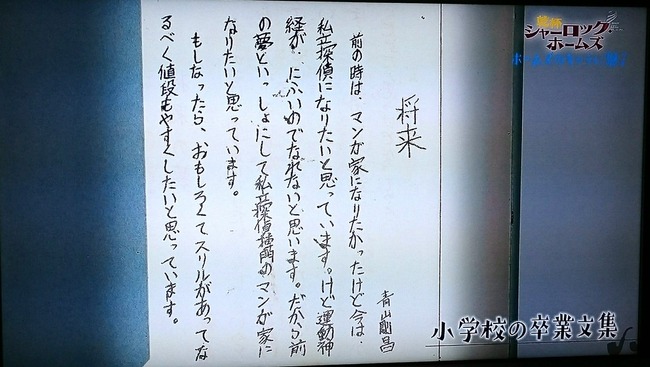 シャーロック
ホームズ
将来
青山剛昌
前の時は、マンガ家になりたかったけど今は、
私立探偵になりたいと思っています。けど運動神
経が、にぶいのでなれないと思います。だから前
の夢といっしょにして私立探偵専門のマンガ家に
なりたいと思っています。
もしなったら、おもしろくてスリルがあってな
るべく値段もやすくしたいと思っています。
小学校の卒業文集